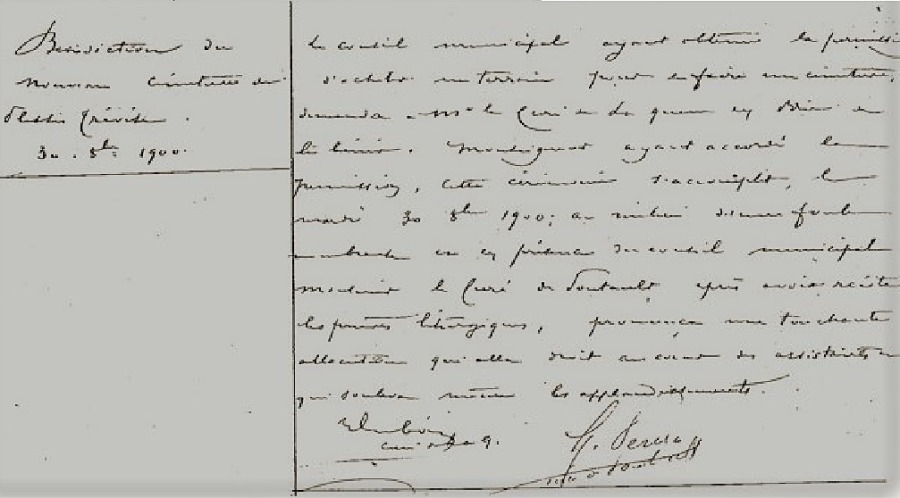 Bénédiction du
nouveau cimetière du
Plessis Trévise.
30. 8bre 1900.
Le conseil municipal ayant obtenu la permission
d'acheter un terrain pour en faire un cimetière,
demanda a Mr le Curé de La queue en Brie de
le bénir. Monseigneur ayant accordé la
permission, cette cérémonie s'accomplit, le
mardi 30 8bre 1900; au milieu d'une foule
nombreuse et en présence du conseil municipal
Monsieur le Curé de Pontault après avoir récité
les prières liturgiques, prononça une touchante
allocution qui alla droit au cœur des assistants et
qui souleva même les applaudissements.
curé